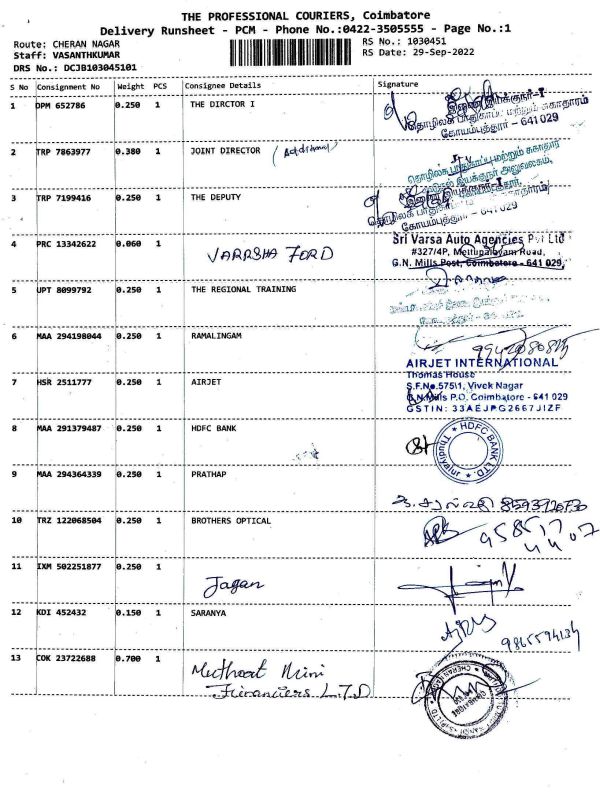 THE PROFESSIONAL COURIERS, Coimbatore
Delivery Runsheet - PCM - Phone No.:0422-3505555 - Page No.:1
Route: CHERAN NAGAR
RS No.: 1030451
Staff: VASANTHKUMAR
RS Date: 29-Sep-2022
DRS No.: DCJB103045101
S No Consignment No Weight PCS Consignee Details Signature
1 DPM 652786 0.250 1 THE DIRCTOR I
கோயம்புத்தூர் - 641 029
2 TRP 7863977 0.380 1 JOINT DIRECTOR (Additional)
3 TRP 7199416 0.250 1 THE DEPUTY
4 PRC 13342622 0.060 1 VARRSHA FORD
Sri Varsa Auto Agencies Pvt Ltd
#327/4P, Mettupalayam Road,
G.N. Mills Post, Coimbatore - 641 029
5 UPT 8099792 0.250 1 THE REGIONAL TRAINING
6 MAA 294198044 0.250 1 RAMALINGAM
7 HSR 2511777 0.250 1 AIRJET
AIRJET INTERNATIONAL
Thomas House
S.F.No.575\1, Vivek Nagar
G.N.Mills P.O, Coimbatore - 641 029
GSTIN: 33AEJPG2667J1ZF
8 MAA 291379487 0.250 1 HDFC BANK
HDFC BANK LTD. Thudiyalur
9 MAA 294364339 0.250 1 PRATHAP
10 TRZ 122068504 0.250 1 BROTHERS OPTICAL
958517
4407
11 IXM 502251877 0.250 1 Jagan
12 KDI 452432 0.150 1 SARANYA
9865594134
13 COK 23722688 0.700 1 Muthoot Mini
Financiers LTD